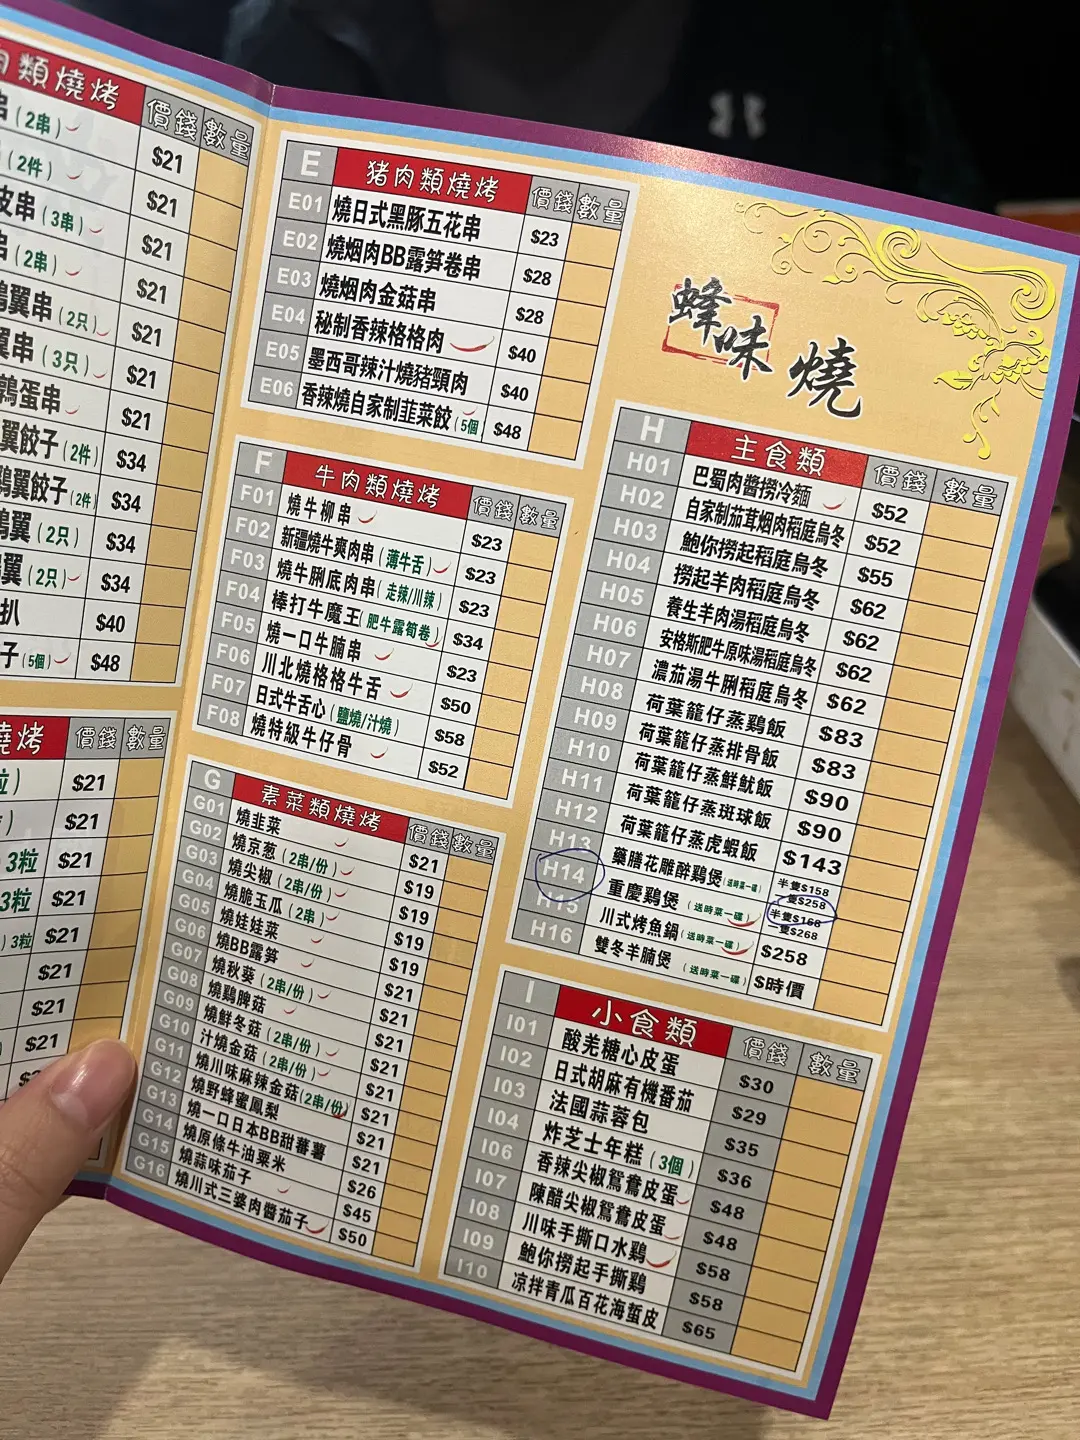 類燒烤 價錢 數量
(2串) $21
(2件) $21
皮串(3串) $21
(2串) $21
翼串(2只) $21
翼串(3只) $21
鶉蛋串 $21
翼餃子(2件) $34
鷄翼餃子(2件) $34
翼(2只) $34
翼(2只) $34
扒 $40
子(5個) $48
燒烤 價錢 數量
$21
$21
3粒 $21
3粒 $21
3粒 $21
$21
$21
$21
E 猪肉類燒烤 價錢 數量
E01 燒日式黑豚五花串 $23
E02 燒烟肉BB露笋卷串 $28
E03 燒烟肉金菇串 $28
E04 秘制香辣格格肉 $40
E05 墨西哥辣汁燒豬頸肉 $40
E06 香辣燒自家制韮菜餃(5個 $48
F 牛肉類燒烤 價錢 數量
F01 燒牛柳串 $23
F02 新疆燒牛爽肉串(薄牛舌) $23
F03 燒牛脷底肉串(走辣/川辣) $23
F04 棒打牛魔王(肥牛露筍卷) $34
F05 燒一口牛腩串 $23
F06 川北燒格格牛舌 $50
F07 日式牛舌心(鹽燒/汁燒) $58
F08 燒特級牛仔骨 $52
G 素菜類燒烤 價錢 數量
G01 燒韭菜 $21
G02 燒京葱(2串/份) $19
G03 燒尖椒(2串/份) $19
G04 燒脆玉瓜(2串) $19
G05 燒娃娃菜 $19
G06 燒BB露笋 $21
G07 燒秋葵(2串/份) $21
G08 燒鷄脾菇 $21
G09 燒鮮冬菇(2串/份) $21
G10 汁燒金菇(2串/份) $21
G11 燒川味麻辣金菇(2串/份) $21
G12 燒野蜂蜜鳳梨 $21
G13 燒一口日本BB甜蕃薯 $21
G14 燒原條牛油粟米 $26
G15 燒蒜味茄子 $45
G16 燒川式三婆肉醬茄子 $50
蜂味燒
H 主食類 價錢 數量
H01 巴蜀肉醬撈冷麵 $52
H02 自家制茄茸烟肉稻庭烏冬 $52
H03 鮑你撈起稻庭烏冬 $55
H04 撈起羊肉稻庭烏冬 $62
H05 養生羊肉湯稻庭烏冬 $62
H06 安格斯肥牛原味湯稻庭烏冬 $62
H07 濃茄湯牛脷稻庭烏冬 $62
H08 荷葉籠仔蒸鷄飯 $83
H09 荷葉籠仔蒸排骨飯 $83
H10 荷葉籠仔蒸鮮魷飯 $90
H11 荷葉籠仔蒸斑球飯 $90
H12 荷葉籠仔蒸虎蝦飯 $143
H13 藥膳花雕醉鷄煲(送時菜一碟) 半隻$158 一隻$258
H14 重慶鷄煲(送時菜一碟) 半隻$168 一隻$268
H15 川式烤魚鍋(送時菜一碟) $258
H16 雙冬羊腩煲(送時菜一碟) $時價
I 小食類 價錢 數量
I01 酸羌糖心皮蛋 $30
I02 日式胡麻有機番茄 $29
I03 法國蒜蓉包 $35
I04 炸芝士年糕(3個) $36
I06 香辣尖椒鴛鴦皮蛋 $48
I07 陳醋尖椒鴛鴦皮蛋 $48
I08 川味手撕口水鷄 $58
I09 鮑你撈起手撕鷄 $58
I10 凉拌青瓜百花海蜇皮 $65